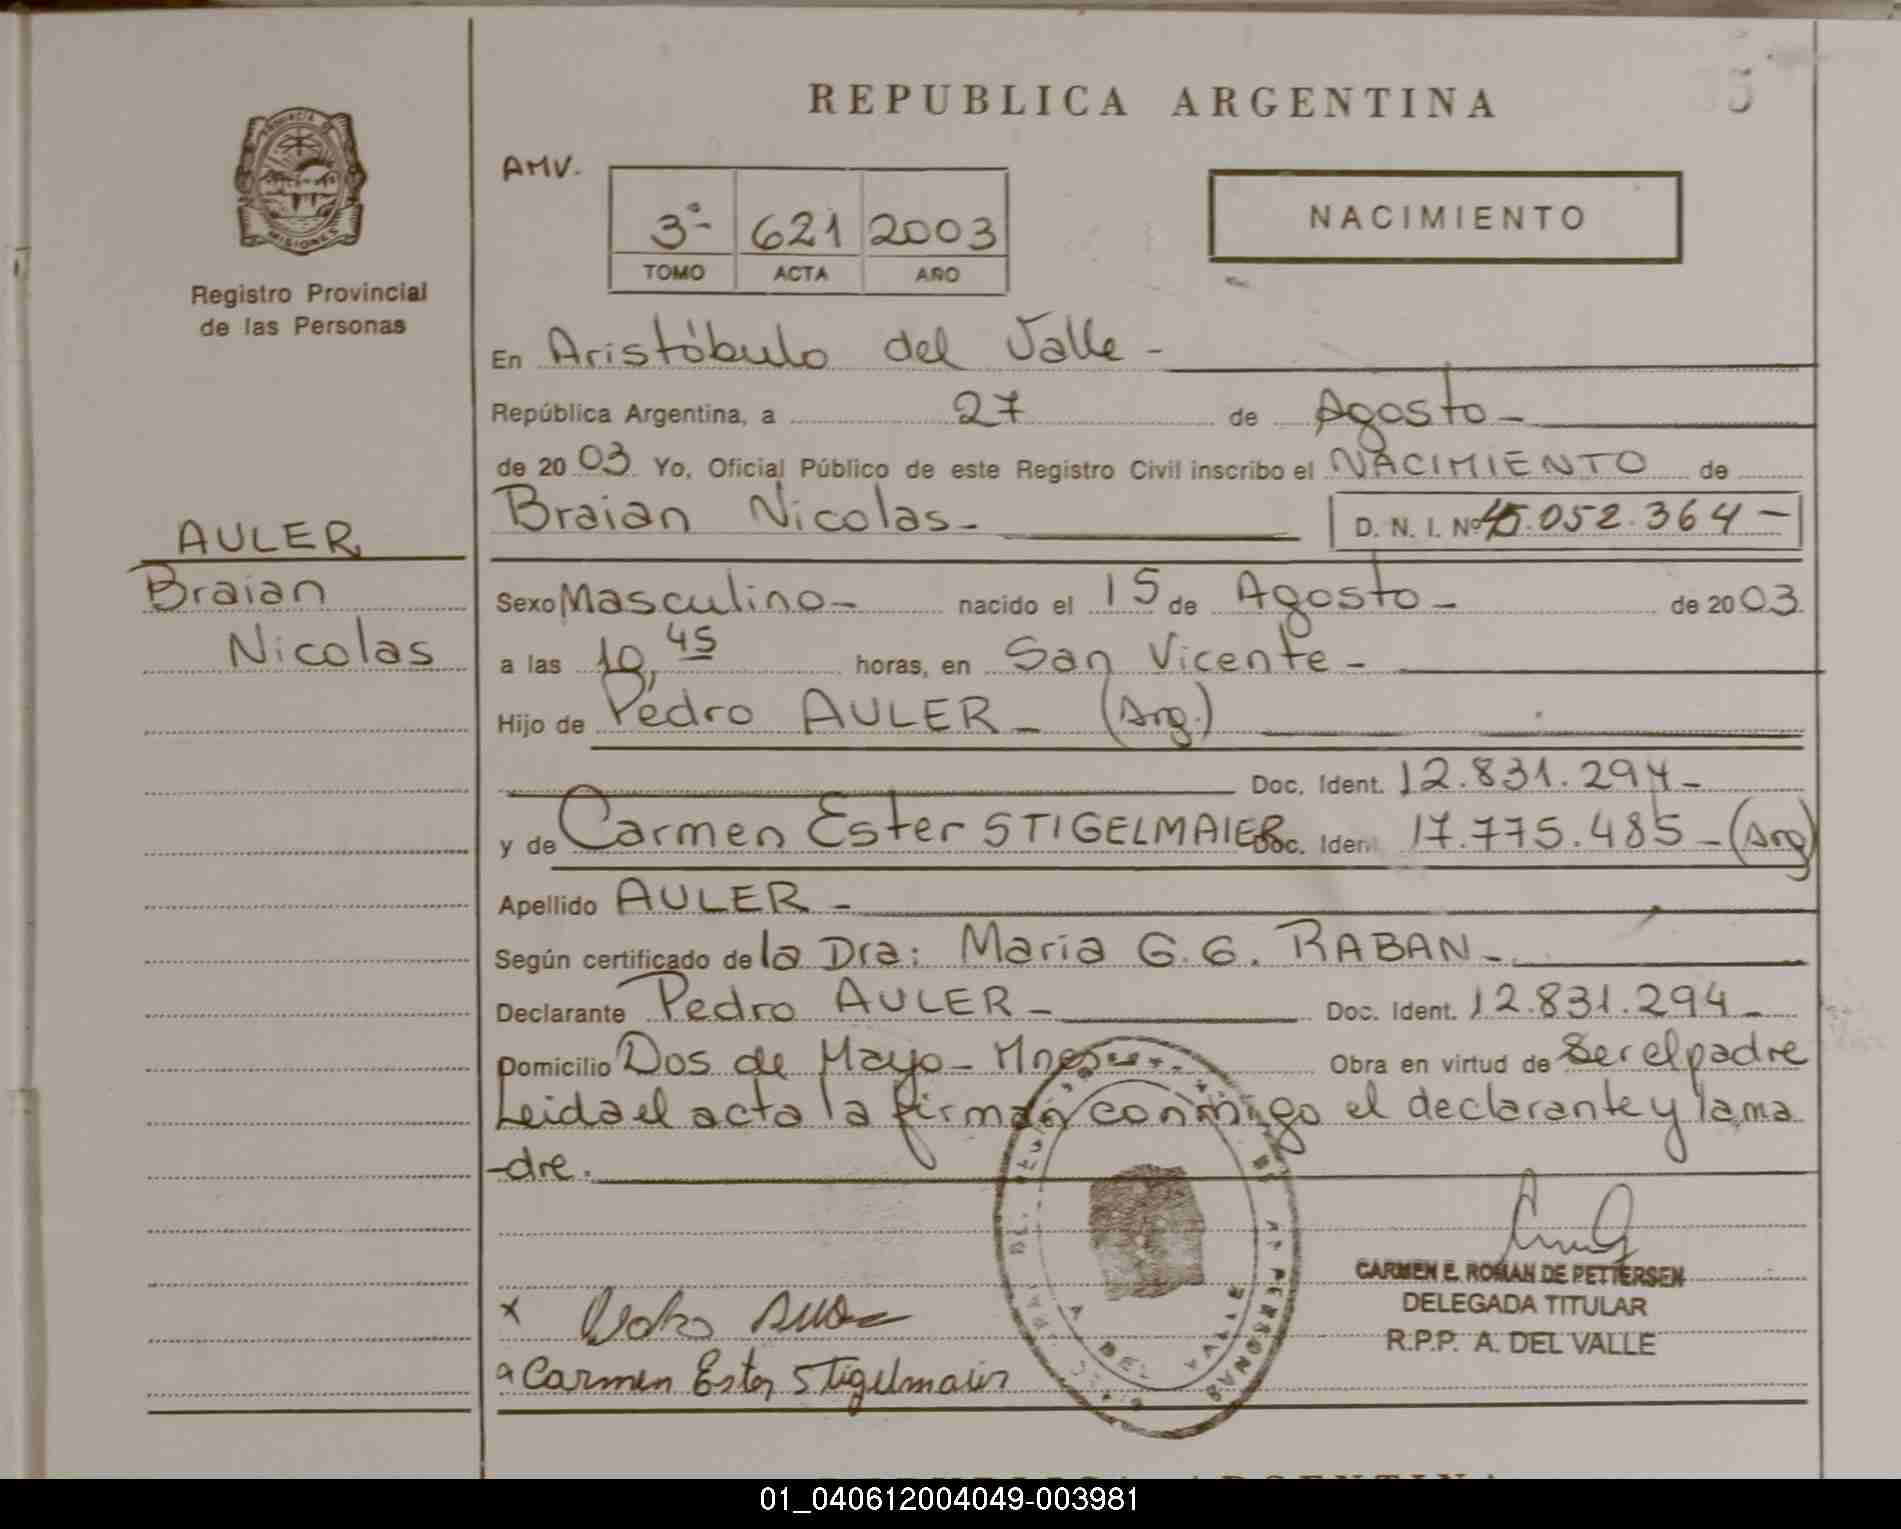 REPUBLICA ARGENTINA
AMV.
3ª 621 2003
TOMO ACTA AÑO
NACIMIENTO
MISIONES
Registro Provincial
de las Personas
En Aristóbulo del Valle -
República Argentina, a 27 de Agosto -
de 2003 Yo, Oficial Público de este Registro Civil inscribo el NACIMIENTO de
Braian Nicolas - D. N. I. Nº 45.052.364 -
AULER
Braian
Nicolas
Sexo Masculino - nacido el 15 de Agosto - de 2003
a las 10,45 horas, en San Vicente -
Hijo de Pedro AULER - (Arg.)
Doc. Ident. 12.831.294 -
y de Carmen Ester STIGELMAIER Doc. Ident 17.775.485 - (Arg)
Apellido AULER -
Según certificado de la Dra: Maria G. G. RABAN -
Declarante Pedro AULER - Doc. Ident. 12.831.294 -
Domicilio Dos de Mayo - Mnes Obra en virtud de Ser el padre
Leida el acta la firman conmigo el declarante y la ma
-dre.
CARMEN E. ROMAN DE PETTERSEN
DELEGADA TITULAR
R.P.P. A. DEL VALLE
x Pedro Auler
Carmen Ester Stigelmaier
REPUBLICA ARGENTINA
01_040612004049-003981